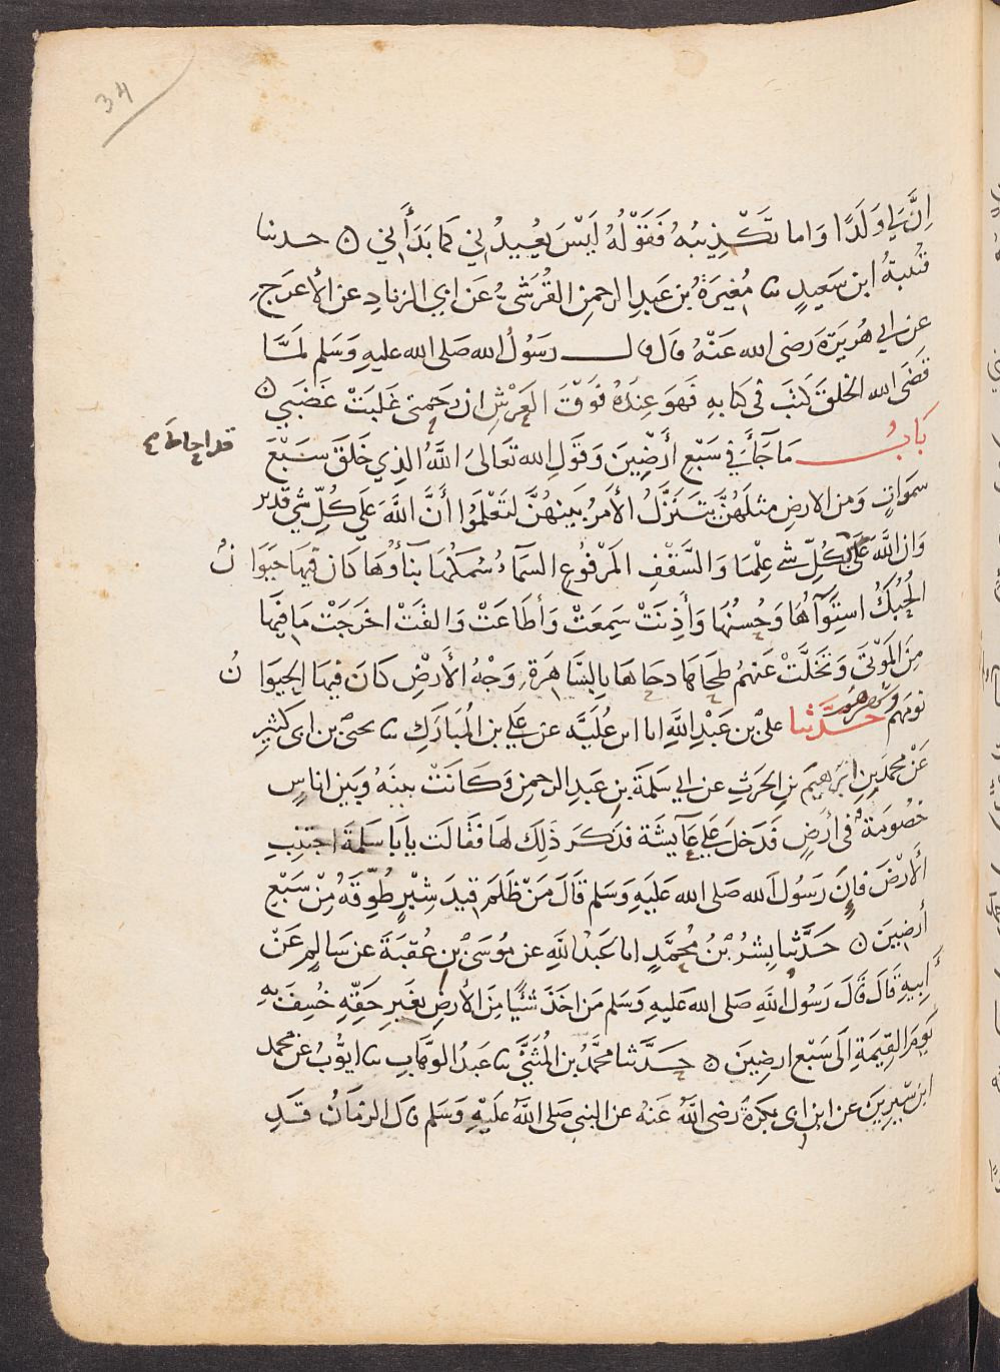 34
اِنَّ لِي وَلَدًا وَاما تَكْذِيبُهُ فَقَوْلُهُ لَيْسَ يُعِيدُنِي كَما بَدَأَنِي ۝ حدثنا
قُتَيبةُ ابن سَعِيدٍ ثنا مُغِيرَةُ بن عَبدِ الرحمنِ القُرَشيُّ عَن ابي الزنادِ عن الأعرَجِ
عن ابي هُرَيرَةَ رَضى الله عَنْهُ قال قال رَسُولُ الله صَلى الله عليهِ وَسَلم لَمَّا
قَضَى الله الخلقَ كَتَبَ في كتابِهِ فَهوَ عِندَهُ فَوْقَ العَرْشِ ان رَحمتى غَلَبَتْ غَضَبي ۝
بَابُ مَا جَآءَ في سَبْعِ أَرَضِينَ وَقَولِ الله تعَالى اللَّهُ الذِي خَلَقَ سَبْعَ
قد احاط ح
سموَاتٍ وَمن الارضِ مثلَهُنَّ يَتَنَزَّلُ الأَمرُ بَينهُنَّ لتَعْلَمُوا أَنَّ اللَّهَ عَلَى كُلِّ شي قَدير
وَان اللَّهَ بكُلِّ شي عِلْمًا وَالسَّقْفِ المَرْفُوعِ السَّمآءُ سَمكَهَا بنآؤُهَا كانَ فِيهَا حَيَوَا نٌ
الحُبُكُ استِوَآؤُهَا وَحُسنُهَا وَأَذِنَتْ سَمِعَتْ وَأَطَاعَتْ وَالقَتْ اخرَجَتْ مَا فِيهَا
مِنَ المَوْتَى وَتَخَلَّتْ عَنهُم طحَاهَا دحَاهَا بِالسَّاهِرَةِ وَجْهُ الأَرْضِ كانَ فِيهَا الحيوَا نُ
نومُهم وَسَهَرهُم حدَّثنا علىُّ بن عَبْدِ اللَّهِ انا ابن عُلَيَّه عن عَلي بن المُبَارَكِ ثنا يحيَى بن ابى كثِيرٍ
عَنْ محمَد بنِ ابرَهِيمَ بن الحَرثِ عن ابي سَلَمَةَ بنِ عَبدِ الرحمنِ وَكَانَتْ بينَهُ وَبَين اناسٍ
خصُومَةٌ في أَرضٍ فَدَخلَ عَلى عَآيشَةَ فذكَرَ ذَلِكَ لهَا فقَالَت يا بَا سَلمَةَ اجتَنِبِ
ألارْضَ فإنَ رَسُولَ الله صَلى الله عَلَيهِ وَسَلم قَالَ مَنْ ظَلَمَ قِيدَ شِبْرٍ طُوِّقَهُ مِنْ سَبْعِ
أَرضِينَ ۝ حَدَّثنا بِشرُ بْنُ مُحمَّدٍ انا عَبدُ اللَّهِ عن مُوسَى بنِ عُقبَةَ عن سَالِمٍ عَنْ
أَبِيهِ قَالَ قَالَ رَسُولُ اللَّهِ صَلى الله عَليهِ وَسَلم مَن اخَذَ شَئًا مِنَ الأرضِ بغَيرِ حَقِّهِ خُسِفَ بهِ
يَومَ القِيَمَةِ اِلَى سَبْع ارضِينَ ۝ حَدَّثنا محمَّدُ بن المُثَنَّى ثنا عَبدُ الوَهَّابِ ثنا ايوُّبُ عن محمد
ابن سِيرِينَ عن ابن ابى بكرَةَ رَضى اللَّهُ عَنهُ عن النبي صَلى اللَّهُ عَلَيْهِ وَسَلم قال الزمَانُ قَدِ